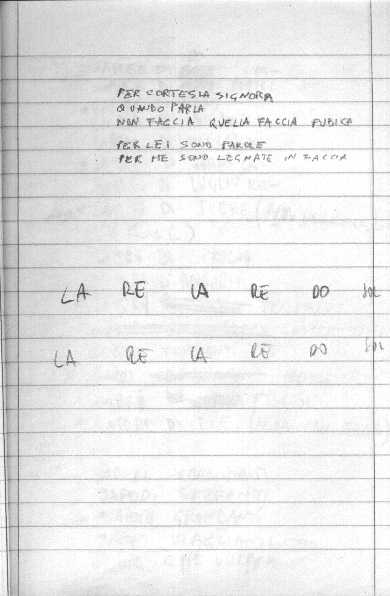 PER CORTESIA SIGNORA
QUANDO PARLA
NON FACCIA QUELLA FACCIA PUBICA
PER LEI SONO PAROLE
PER ME SONO LEGNATE IN FACCIA
LA RE LA RE DO SOL
LA RE LA RE DO SOL